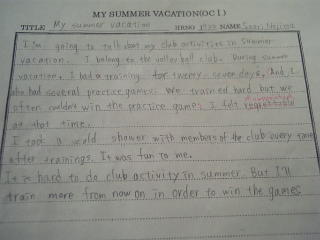 MY SUMMER VACATION(OC I)
TITLE My summer vacation HRNO NAME Saori Nojima
I'm going to talk about my club activities in summer
vacation. I belong to the volleyball club. During summer
vacation, I had a training for twenty-seven days, And I
also had several practice games. We trained hard but we
often couldn't win the practice games. I felt regrettable
at that time.
I took a shower with members of the club every time
after trainings. It was fun to me.
It is hard to do club activity in summer. But I'll
train more from now on in order to win the games